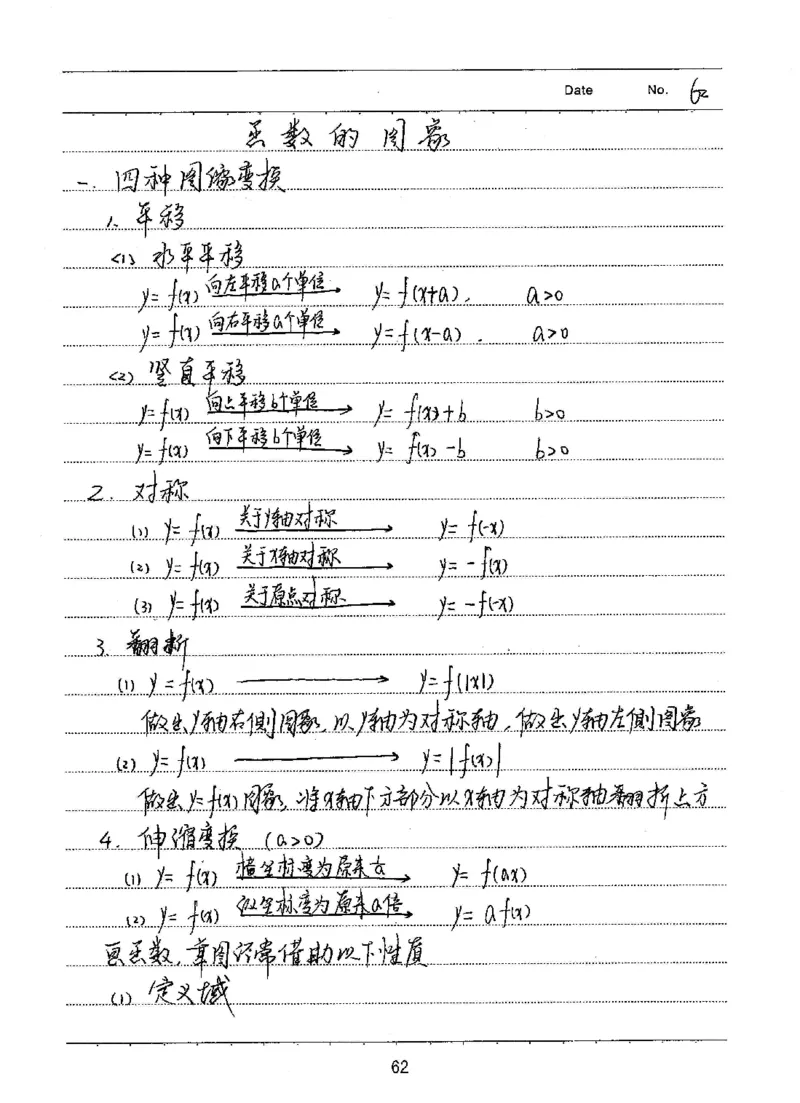 Date No. 62
函数的图象
一. 四种图像变换
1. 平移
<1> 水平平移
y=f(x) 向左平移a个单位 y=f(x+a), a>0
y=f(x) 向右平移a个单位 y=f(x-a). a>0
<2> 竖直平移
y=f(x) 向上平移b个单位 y=f(x)+b b>0
y=f(x) 向下平移b个单位 y=f(x)-b b>0
2. 对称
(1) y=f(x) 关于y轴对称 y=f(-x)
(2) y=f(x) 关于x轴对称 y=-f(x)
(3) y=f(x) 关于原点对称 y=-f(-x)
3. 翻折
(1) y=f(x) y=f(|x|)
做出y轴右侧图象, 以y轴为对称轴, 做出y轴左侧图象
(2) y=f(x) y=|f(x)|
做出y=f(x)图象, 将x轴下方部分以x轴为对称轴翻折上方
4. 伸缩变换 (a>0)
(1) y=f(x) 横坐标变为原来1/a y=f(ax)
(2) y=f(x) 纵坐标变为原来a倍 y=af(x)
画函数, 草图经常借助以下性质
(1) 定义域
62